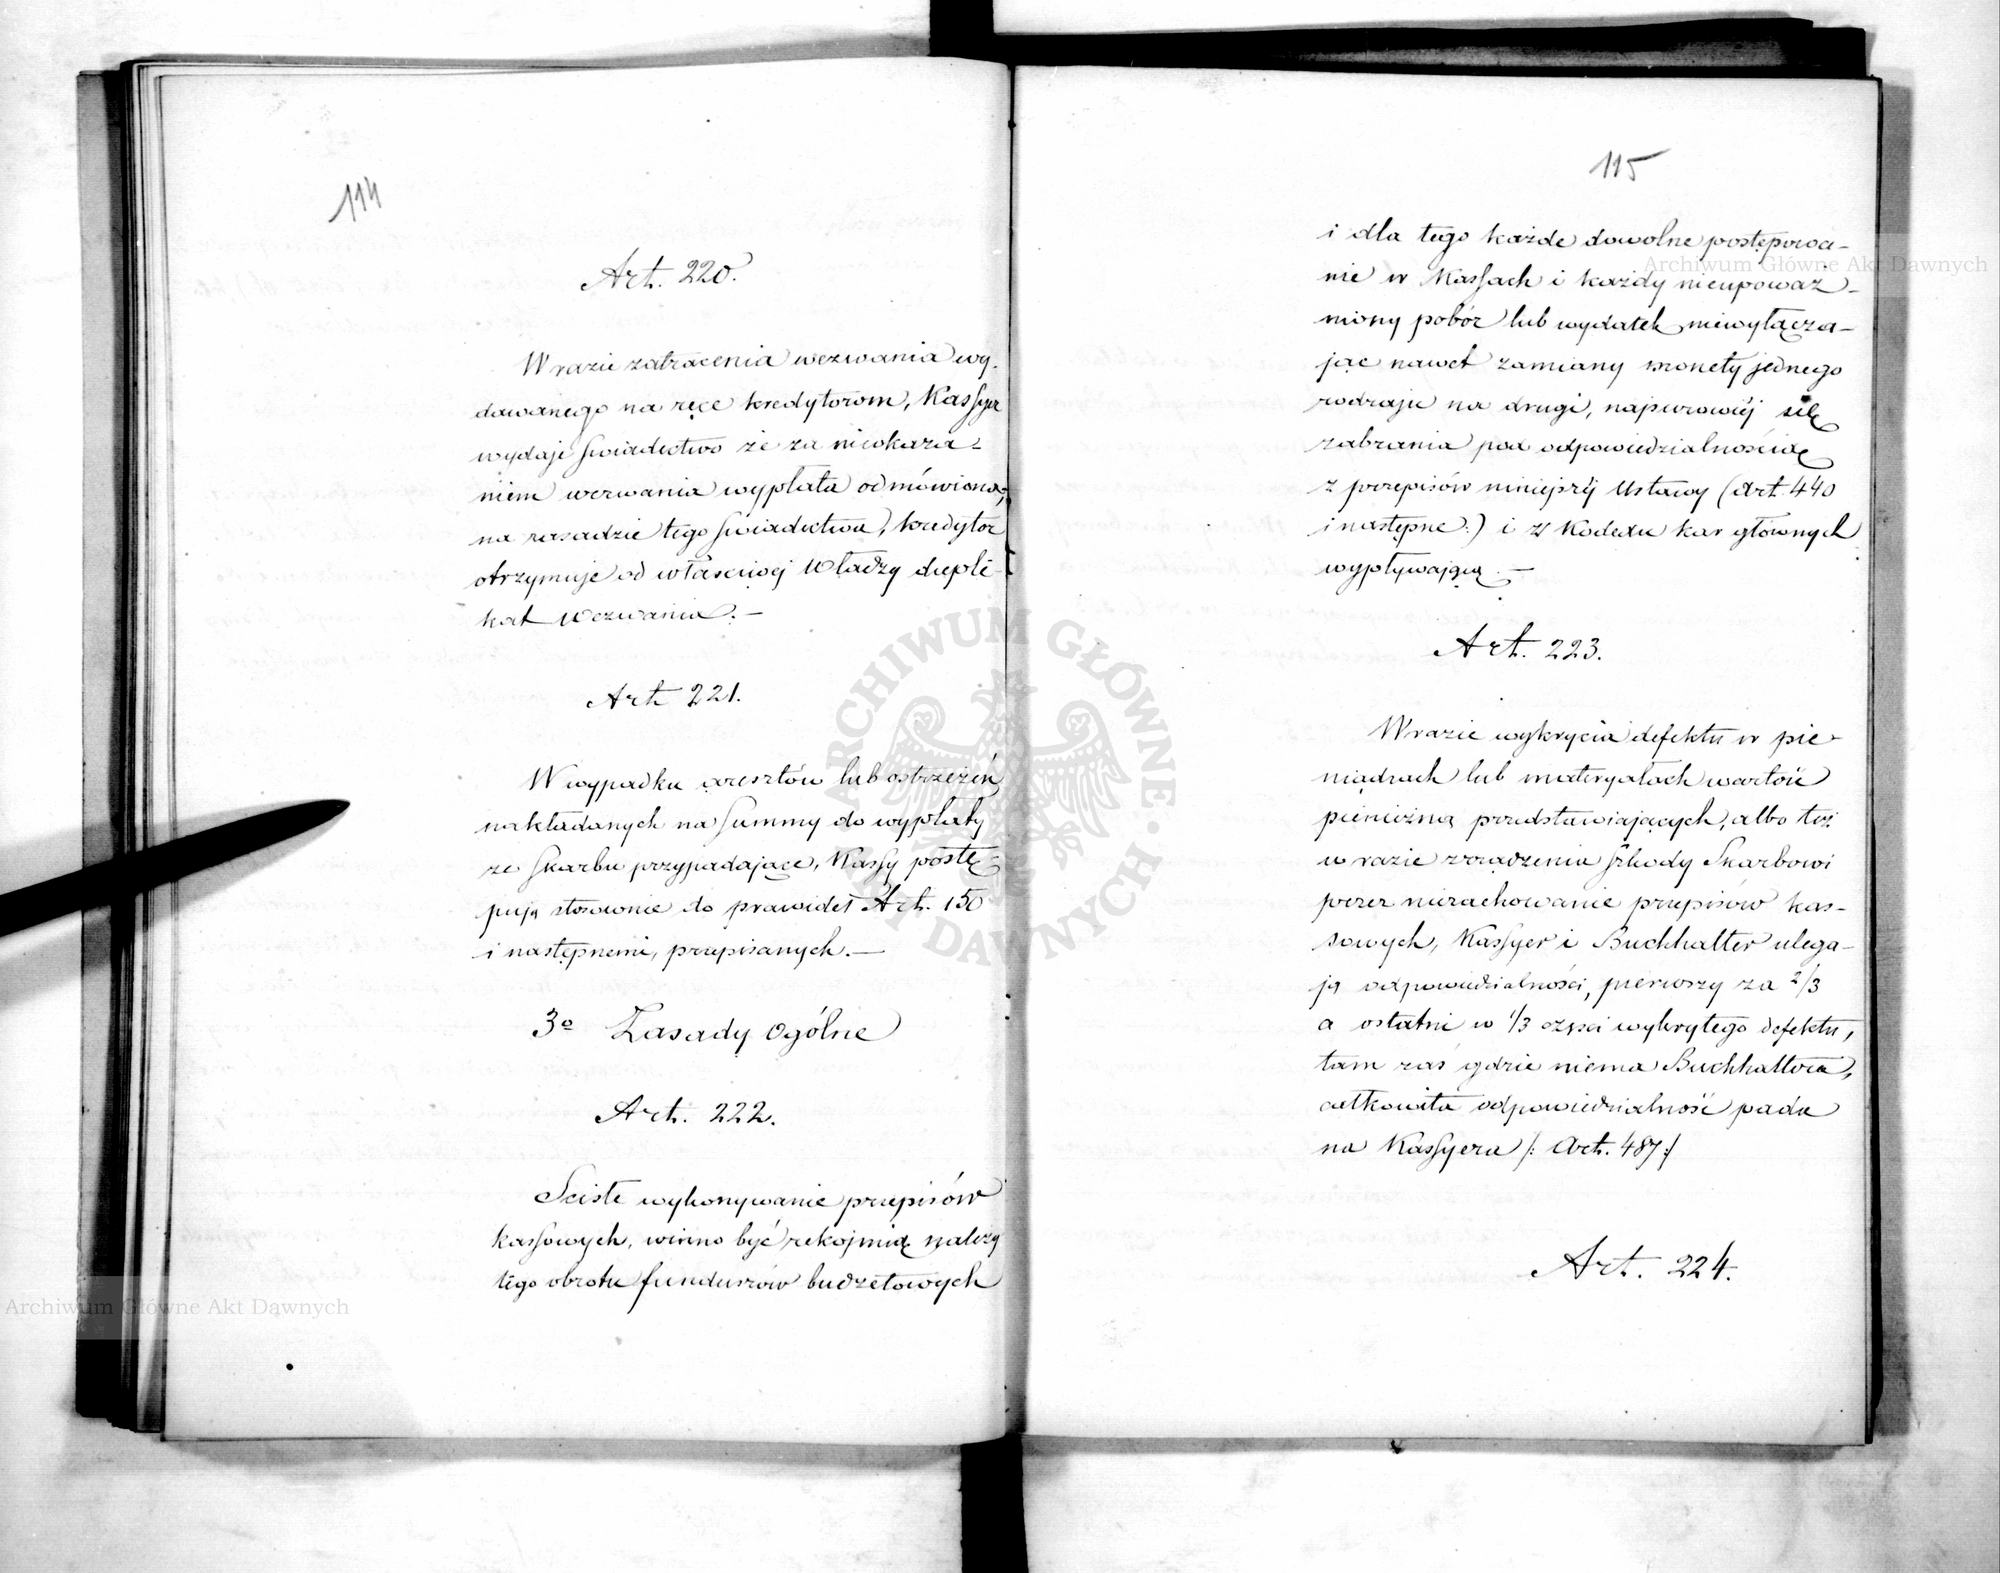 114
Art. 220.
W razie zatracenia wezwania wy-
dawanego na ręce kredytorom, Kassyer
wydaje świadectwo że za nieokaza-
niem wezwania wypłata odmówiona,
na zasadzie tego świadectwa, kredytor
otrzymuje od właściwej Władzy dupli-
kat wezwania. —
Art. 221.
W wypadku aresztów lub ostrzeżeń
nakładanych na summy do wypłaty
ze Skarbu przypadające, Kassy postę-
pują stosownie do prawideł Art. 150
i następnemi, przepisanych. —
3o Zasady Ogólne
Art. 222.
Sciste wykonywanie przepisów
kassowych, winno być rękojmią należy
tego obrotu funduszów budżetowych
115
i dla tego każde dowolne postępowa-
nie w Kassach i każdy nieupoważ-
niony pobór lub wydatek, niewyłącza-
jąc nawet zamiany monety jednego
rodzaju na drugi, najsurowiej się
zabrania pod odpowiedzialnością
z przepisów niniejszej Ustawy (Art. 440
i następne:) i z Kodexu kar głównych
wypływającą. —
Art. 223.
W razie wykrycia defektu w pie-
niądzach lub materyałach wartość
pieniężną przedstawiających, albo też
w razie zrządzenia szkody Skarbowi
przez niezachowanie przepisów kas-
sowych, Kassyer i Buchhalter ulega-
ją odpowiedzialności, pierwszy za 2/3
a ostatni w 1/3 części wykrytego defektu,
tam zaś gdzie niema Buchhaltera,
całkowita odpowiedzialność pada
na Kassyera /: Art. 487:/
Art. 224.
Archiwum Główne Akt Dawnych
Archiwum Główne Akt Dawnych
ARCHIWUM GŁÓWNE AKT DAWNYCH